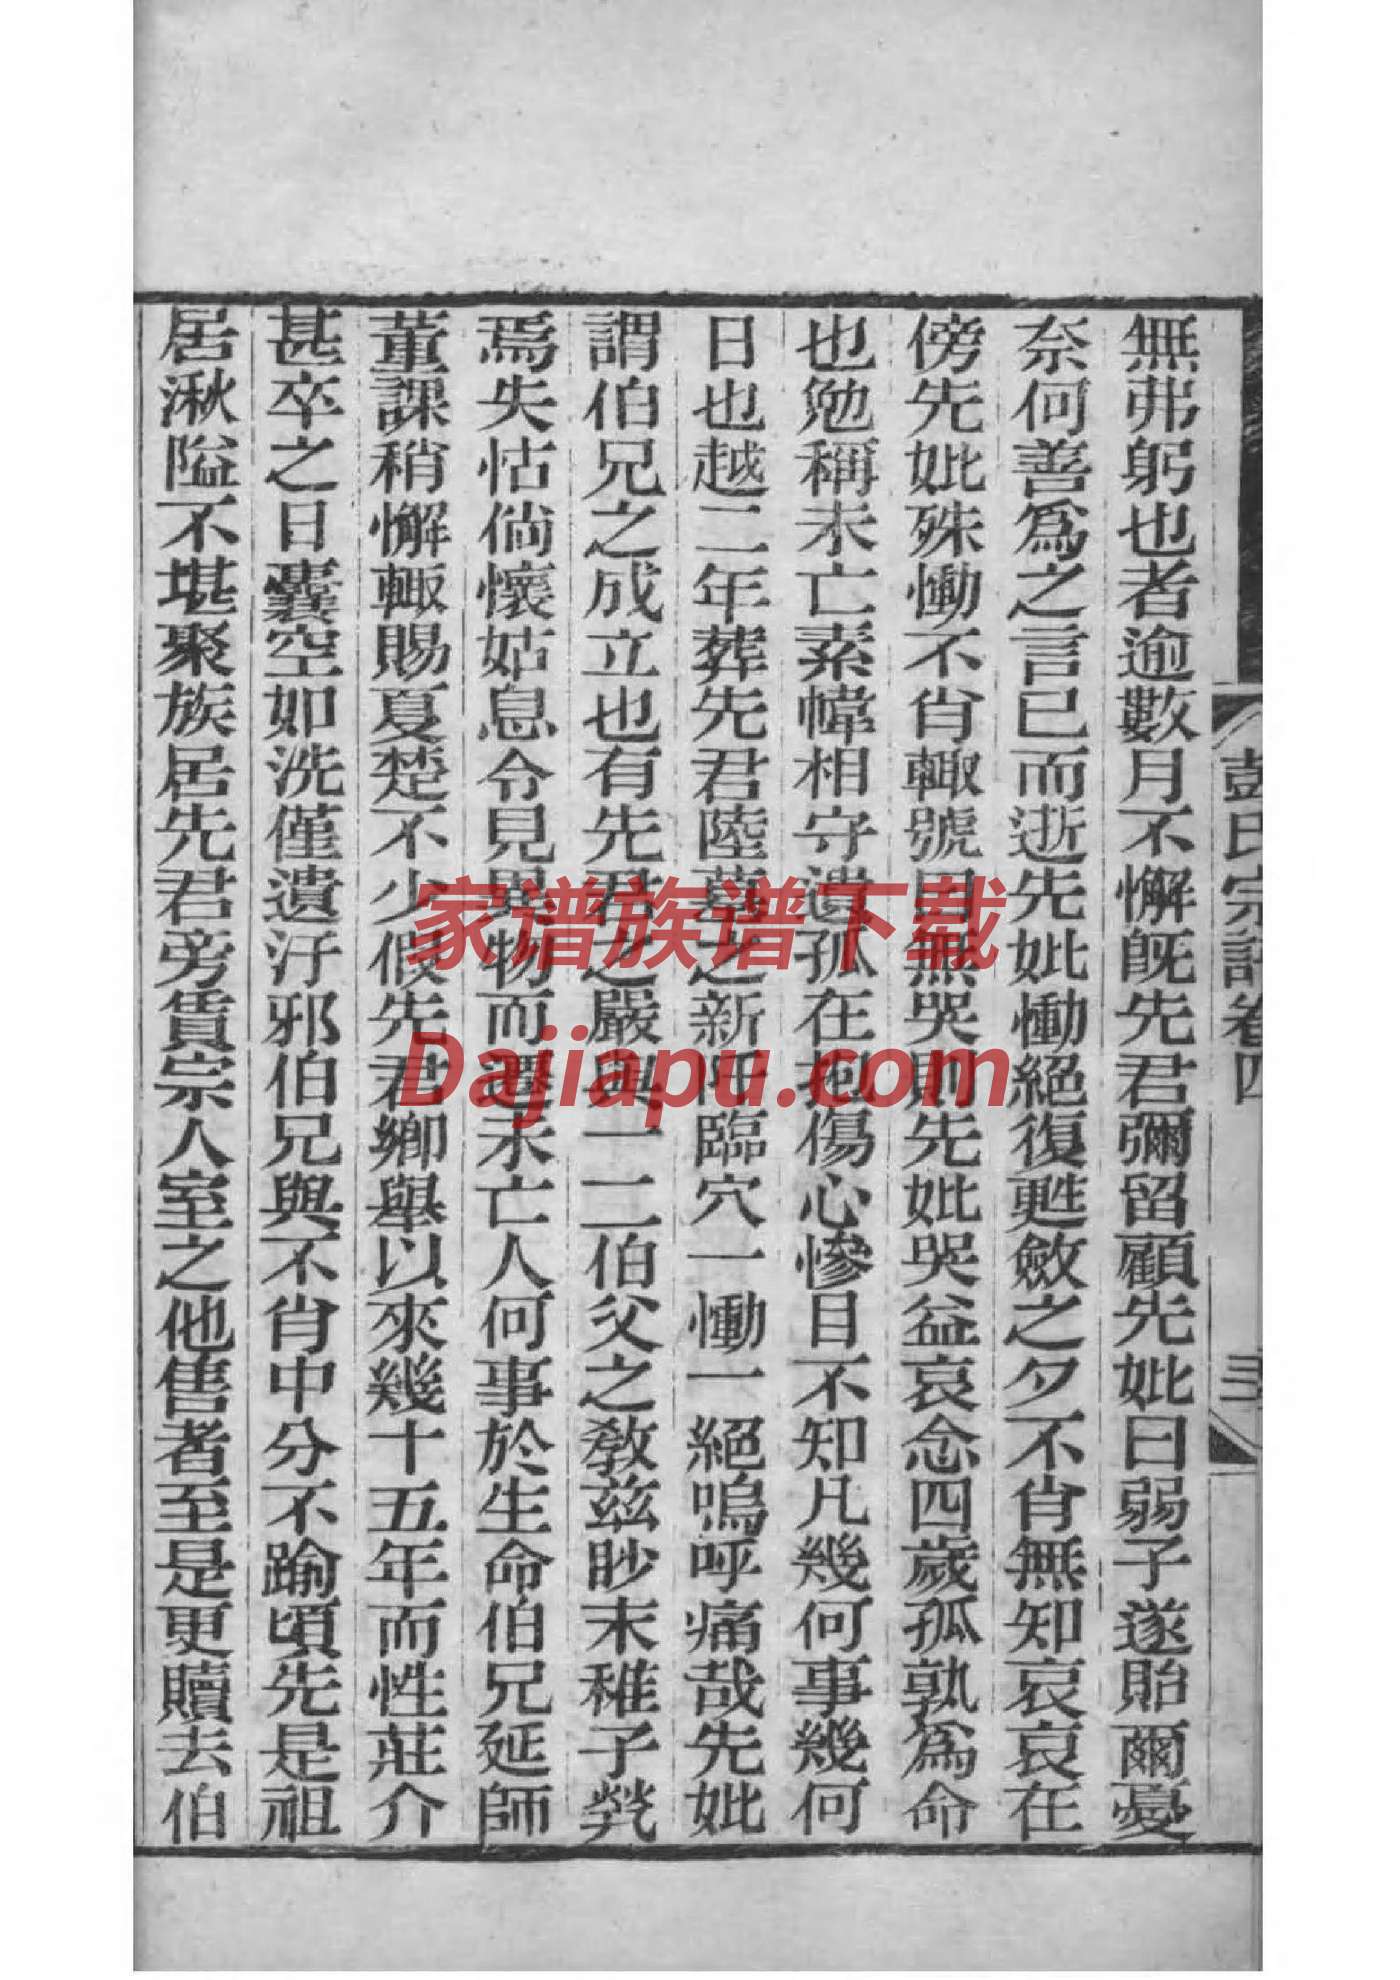 無弗躬也者逾數月不懈旣先君彌留顧先妣曰弱子遂貽爾憂
奈何善爲之言已而逝先妣慟絕復甦斂之夕不肖無知哀哀在
傍先妣殊慟不肖輙號曰無哭則先妣哭益哀念四歲孤孰爲命
也勉稱未亡素幃相守遺孤在抱傷心慘目不知凡幾何事幾何
日也越二年葬先君陸墓之新呼臨穴一慟一絕嗚呼痛哉先妣
謂伯兄之成立也有先君之嚴與一二伯父之敎兹眇末稚子煢
焉失怙倘懷姑息令見異物而遷未亡人何事於生命伯兄延師
董課稍懈輙賜夏楚不少假先君鄉舉以來幾十五年而性莊介
甚卒之日囊空如洗僅遺汙邪伯兄與不肖中分不踰頃先是祖
居湫隘不堪聚族居先君旁賃宗人室之他售者至是更贖去伯
彭氏宗譜卷四
三
家谱族谱下载
Dajiapu.com